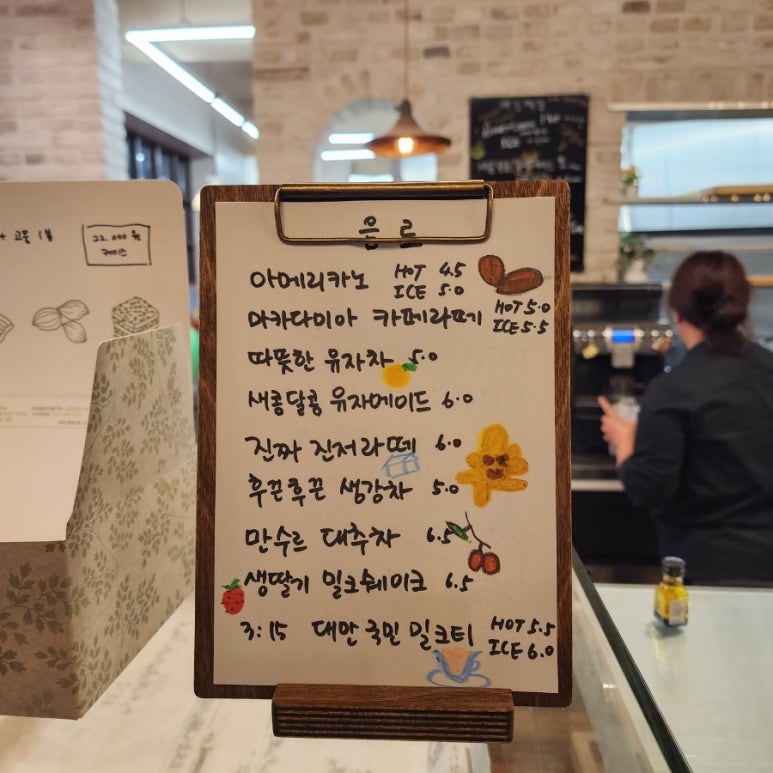 음료
아메리카노 HOT 4.5
ICE 5.0
마카다미아 카페라떼 HOT 5.0
ICE 5.5
따뜻한 유자차 5.0
새콩달콩 유자에이드 6.0
진짜 진저라떼 6.0
후끈후끈 생강차 5.0
만수르 대추차 6.5
생딸기 밀크쉐이크 6.5
3:15 대만 국민 밀크티 HOT 5.5
ICE 6.0
22.000원
케이스